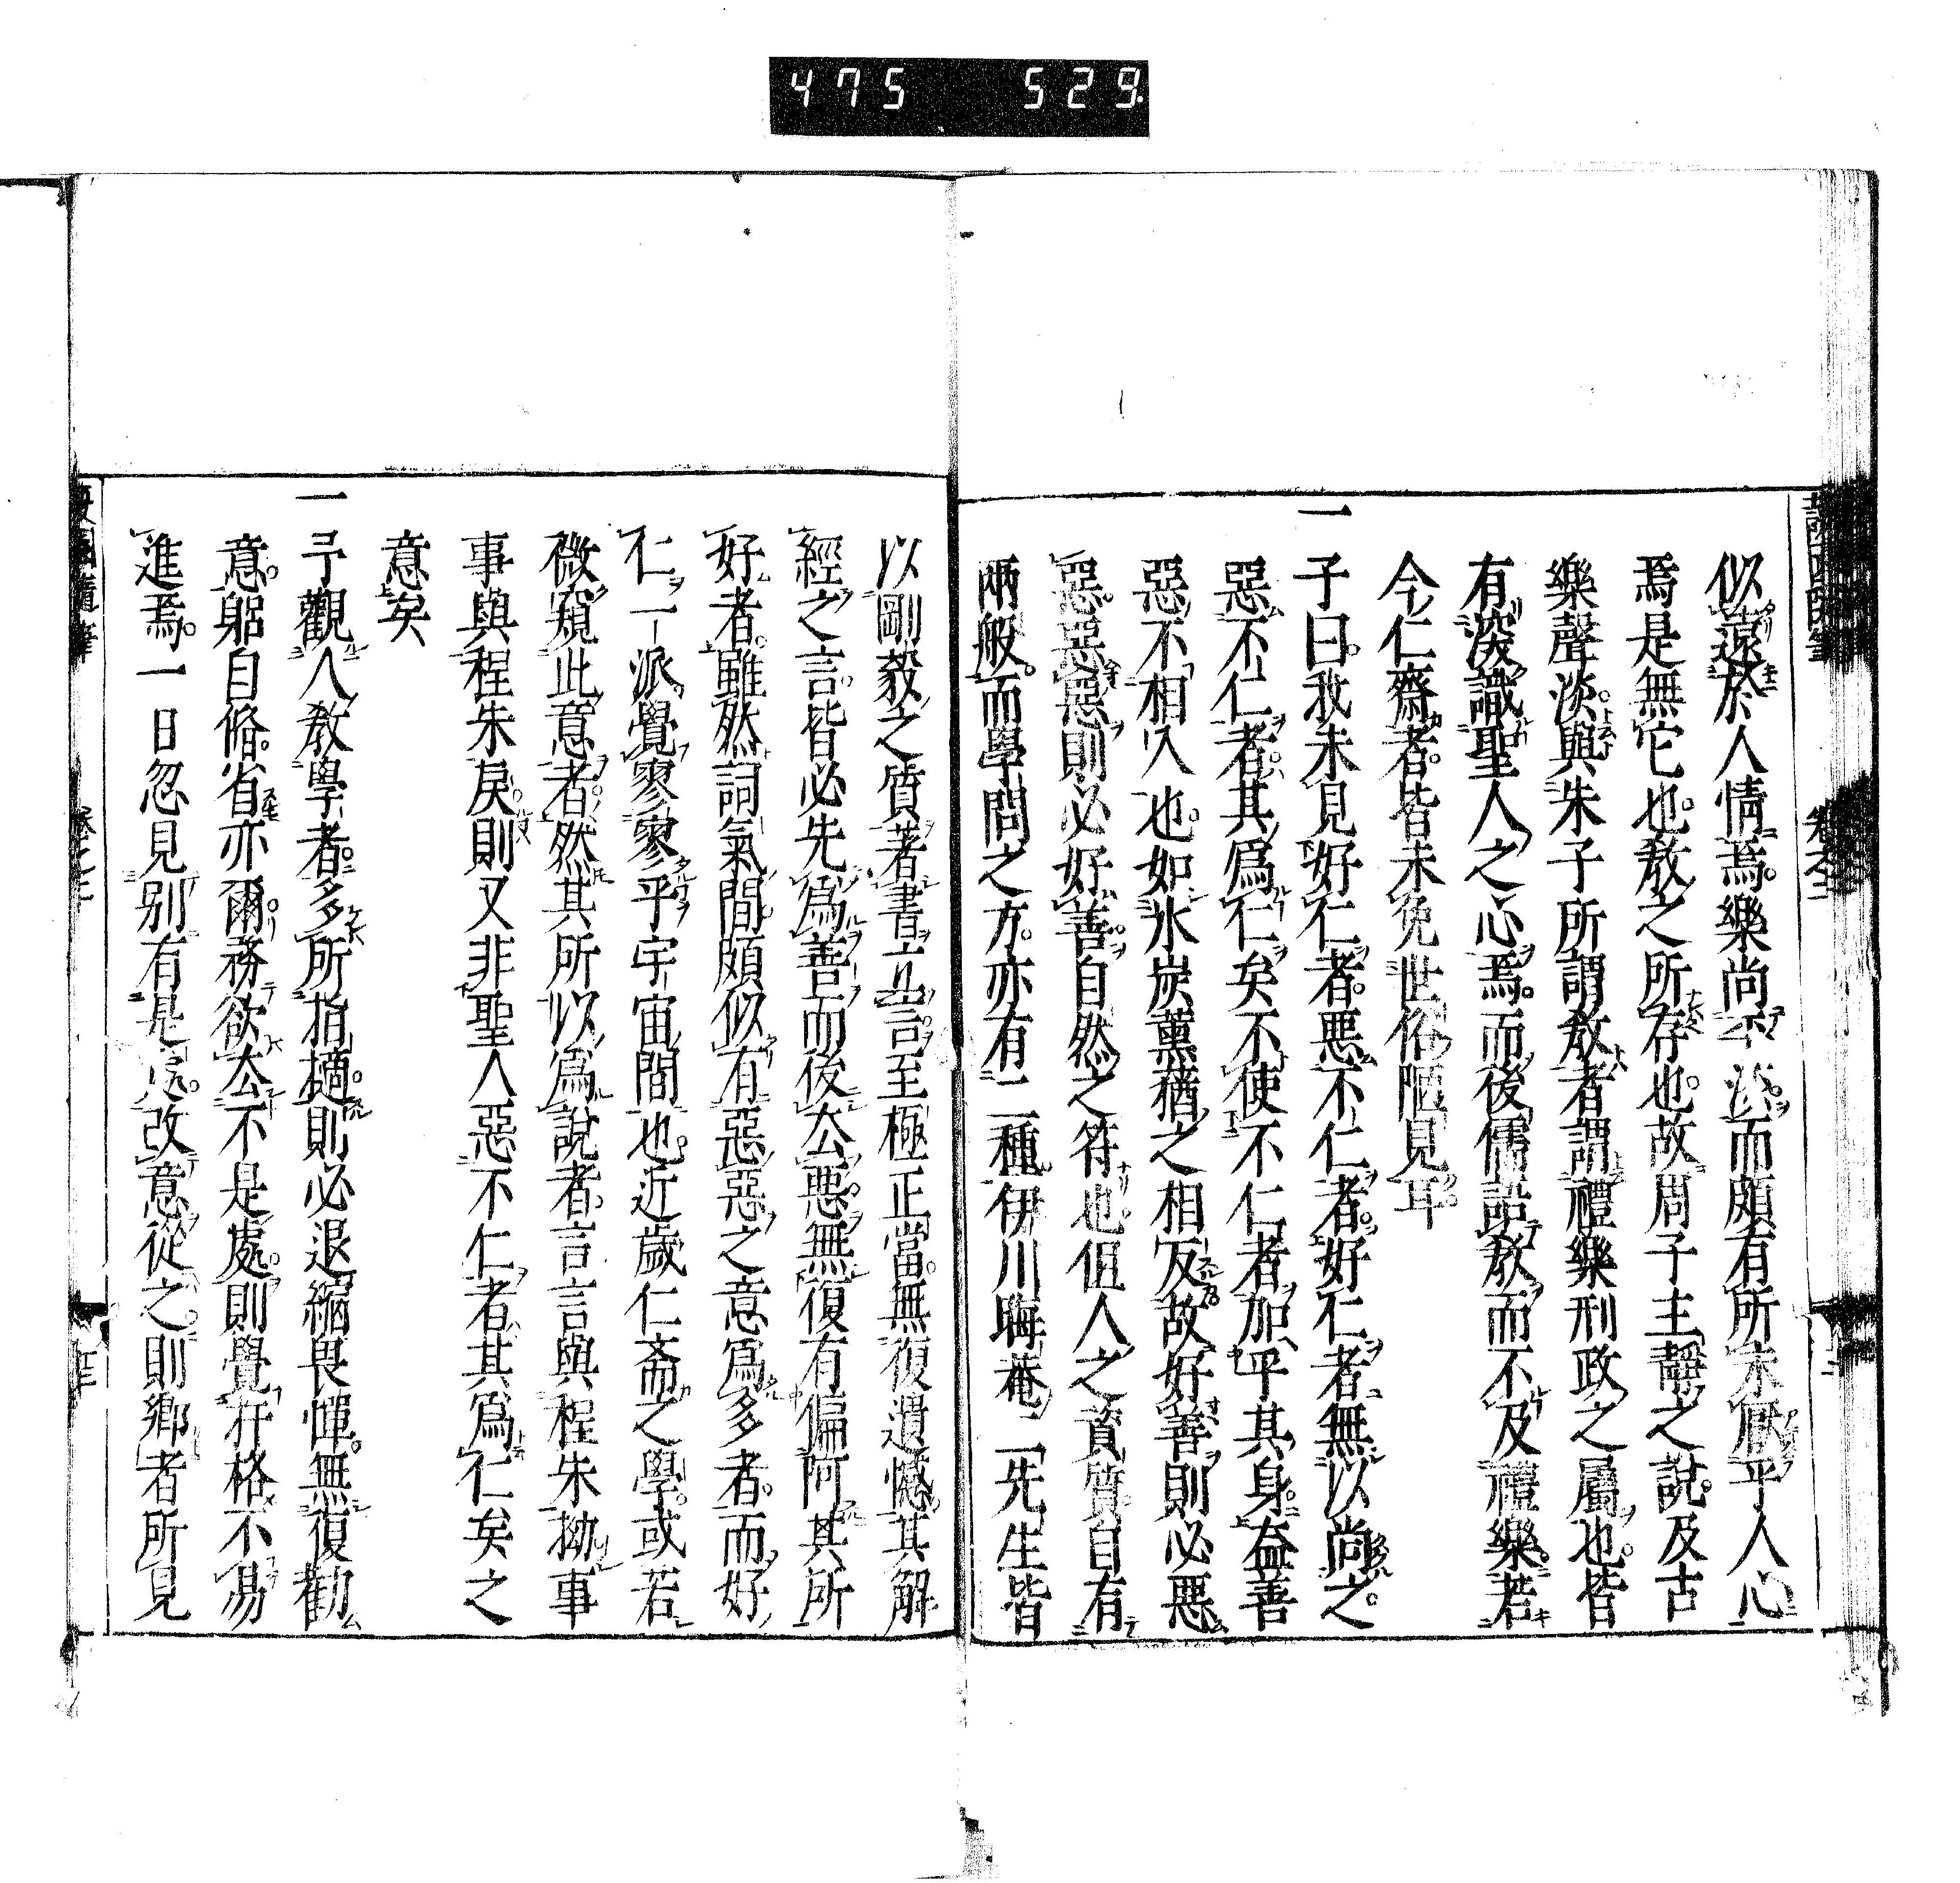 475 529
卷之二
似遠於人情焉。樂尚平淡。而頗有所未厭乎人心
焉。是無它也。敎之所存也。故周子主靜之說。及古
樂聲淡。與朱子所謂敎者。謂禮樂刑政之屬也。皆
有深識聖人之心焉。而後儒詁敎而不及禮樂。若
今仁齋者。皆未免世俗陋見耳。
一子曰。我未見好仁者。惡不仁者。好仁者無以尚之。
惡不仁者。其爲仁矣。不使不仁者加乎其身。益善
惡不相入也。如氷炭薰蕕之相反。故好善則必惡
惡。惡惡則必好善。自然之符也。但人之資質。自有
兩般。而學問之方。亦有二種。伊川晦菴二先生。皆
以剛毅之質。著書立言。至極正當。無復遺憾。其解
經之言。皆必先爲善而後去惡。無復有偏阿其所
好者。雖然詞氣間頗似有惡惡之意爲多者。而好
仁一派。覺寥寥乎宇宙間也。近歲仁斎之學。或若
微窺此意者。然其所以爲說者。言言與程朱拗。事
事與程朱戾。則又非聖人惡不仁者其爲仁矣之
意矣
一予觀人敎學者。多所指擿。則必退縮畏憚。無復勸
意。躬自脩省亦爾。務欲去不是處。則覺扞格不易
進焉。一日忽見别有是處。改意從之。則鄉者所見
隨筆
卷之二